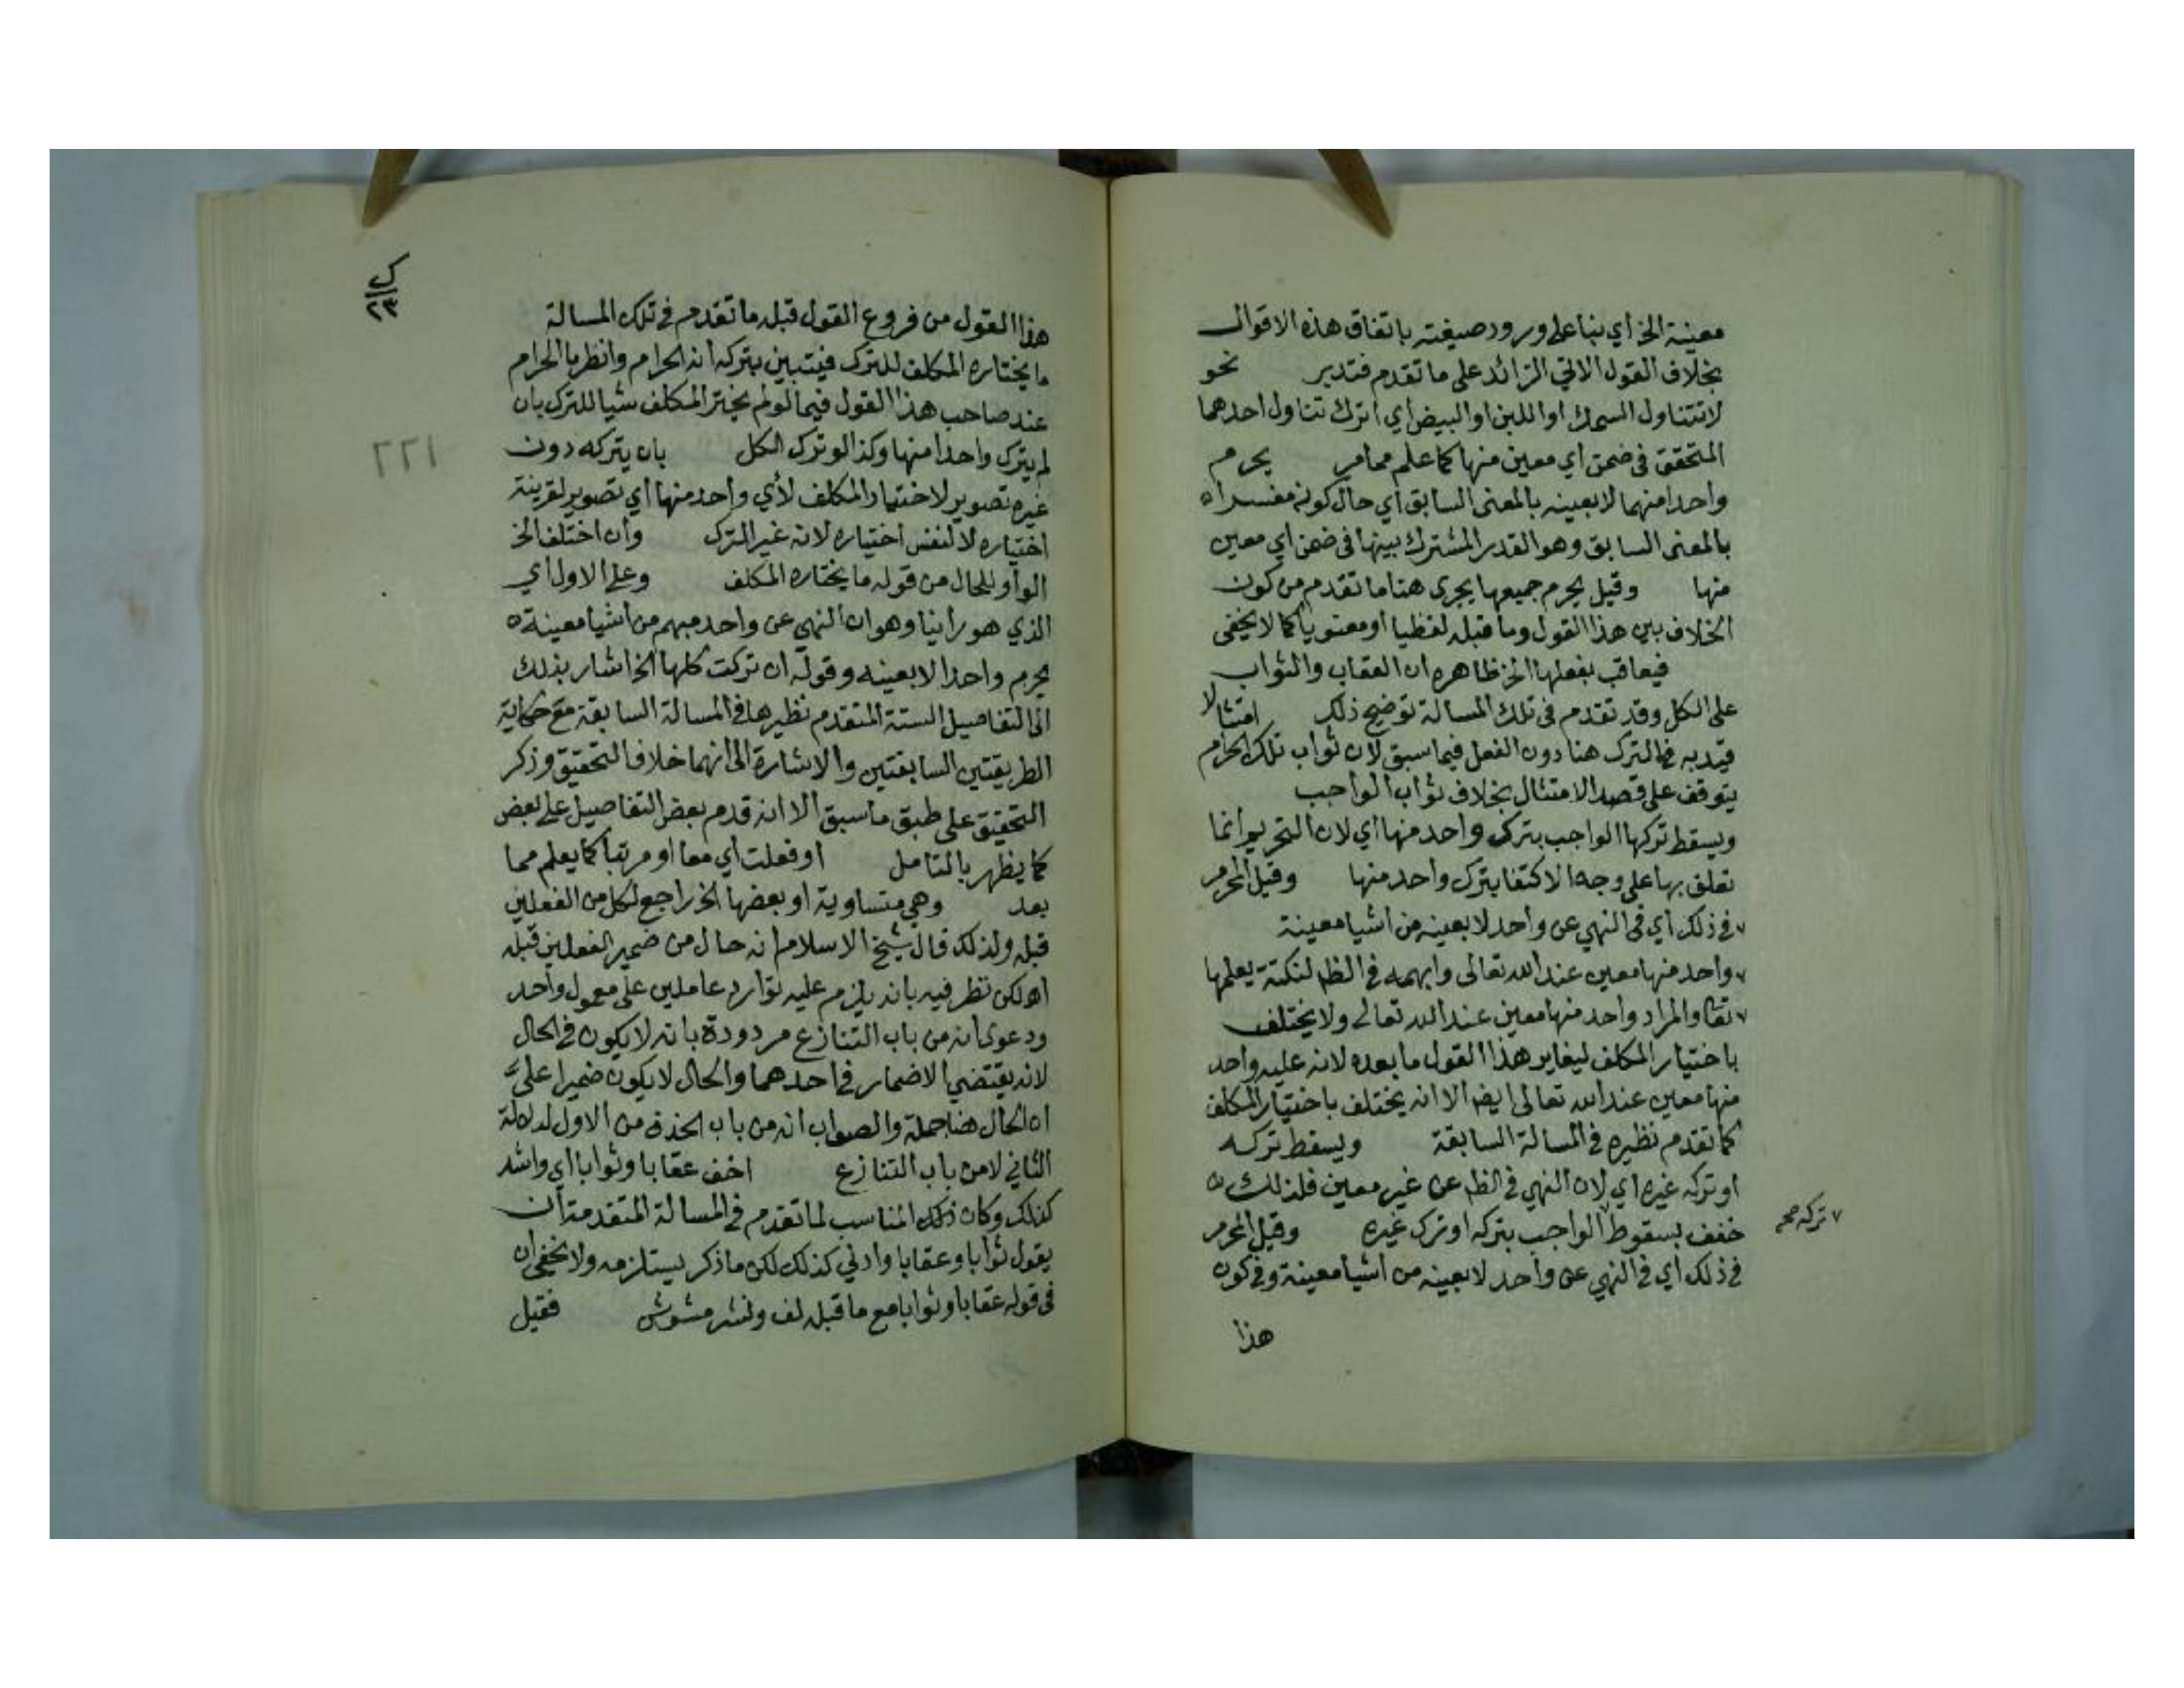 معينة الخ أي بنا على ورود صيغته باتفاق هذه الاقوال
بخلاف القول الاتي الزائد على ما تقدم فتدبر نحو
لا تتناول السمك او اللبن او البيض أي اترك تناول احدهما
المتحقق في ضمن اي معين منها كما علم مما مر يحرم
واحدا منهما لا بعينه بالمعنى السابق أي حال كونه مفسرا
بالمعنى السابق وهو القدر المشترك بينها في ضمن اي معين
منها وقيل يحرم جميعها يجرى هنا ما تقدم من كون
الخلاف بين هذا القول وما قبله لفظيا أو معنويا كما لا يخفى
فيعاقب بفعلها الخ ظاهره ان العقاب والثواب
على الكل وقد تقدم في تلك المسالة توضيح ذلك امتثالا
قيد به في الترك هنا دون الفعل فيما سبق لان ثواب تلك الحرام
يتوقف على قصد الامتثال بخلاف ثواب الواجب
ويسقط تركها الواجب بترك واحد منها أي لان التحريم انما
تعلق بها على وجه الاكتفا بترك واحد منها وقيل المحرم
في ذلك أي في النهي عن واحد لا بعينه من اشيا معينة
واحد منها معين عند الله تعالى وابهمه في الظ لنكتة يعلمها
تعا والمراد واحد منها معين عند الله تعالى ولا يختلف
باختيار المكلف ليغاير هذا القول ما بعده لانه عليه واحد
منها معين عند الله تعالى ايضا الا انه يختلف باختيار المكلف
كما تقدم نظيره في المسالة السابقة ويسقط تركه
او تركه غيره اي لان النهي في الظ عن غير معين فلذلك
خفف بسقوط الواجب بتركه او ترك غيره وقيل المحرم
في ذلك أي في النهي عن واحد لا بعينه من اشيا معينة وفي كون
هذا
٧ تركه صح
هذا القول من فروع القول قبله ما تقدم في تلك المسالة
ما يختاره المكلف للترك فيتبين بتركه انه الحرام وانظر ما الحرام
عند صاحب هذا القول فيما لو لم يختر المكلف شيا للترك بان
لم يترك واحدا منها وكذا لو ترك الكل بان يتركه دون
غيره تصوير لاختيار المكلف لأي واحد منها أي تصوير لقرينة
اختياره لا لنفس اختياره لانه غير الترك وان اختلف الخ
الواو للحال من قوله ما يختاره المكلف وعلى الاول أي
الذي هو راينا وهو ان النهي عن واحد مبهم من اشيا معينة
يحرم واحدا لا بعينه وقوله ان تركت كلها الخ اشار بذلك
الى التفاصيل الستة المتقدم نظيرها في المسالة السابقة مع حكاية
الطريقتين السابقتين والاشارة الى انهما خلاف التحقيق وذكر
التحقيق على طبق ما سبق الا انه قدم بعض التفاصيل على بعض
كما يظهر بالتامل او فعلت أي معا او مرتبا كما يعلم مما
بعد وهي متساوية او بعضها الخ راجع لكل من الفعلين
قبله ولذلك قال شيخ الاسلام انه حال من ضمير الفعلين قبله
اه لكن نظر فيه بانه يلزم عليه توارد عاملين على معمول واحد
ودعوى انه من باب التنازع مردودة بانه لا يكون في الحال
لانه يقتضي الاضمار في احدهما والحال لا يكون ضميرا على
ان الحال هنا جملة والصواب انه من باب الحذف من الاول لدلالة
الثاني لا من باب التنازع اخف عقابا وثوابا اي واشد
كذلك وكان ذلك المناسب لما تقدم في المسالة المتقدمة ان
يقول ثوابا وعقابا وادنى كذلك لكن ما ذكر يستلزمه ولا يخفى ان
في قوله عقابا وثوابا مع ما قبله لف ونشر مشوش فقيل
٢٢١